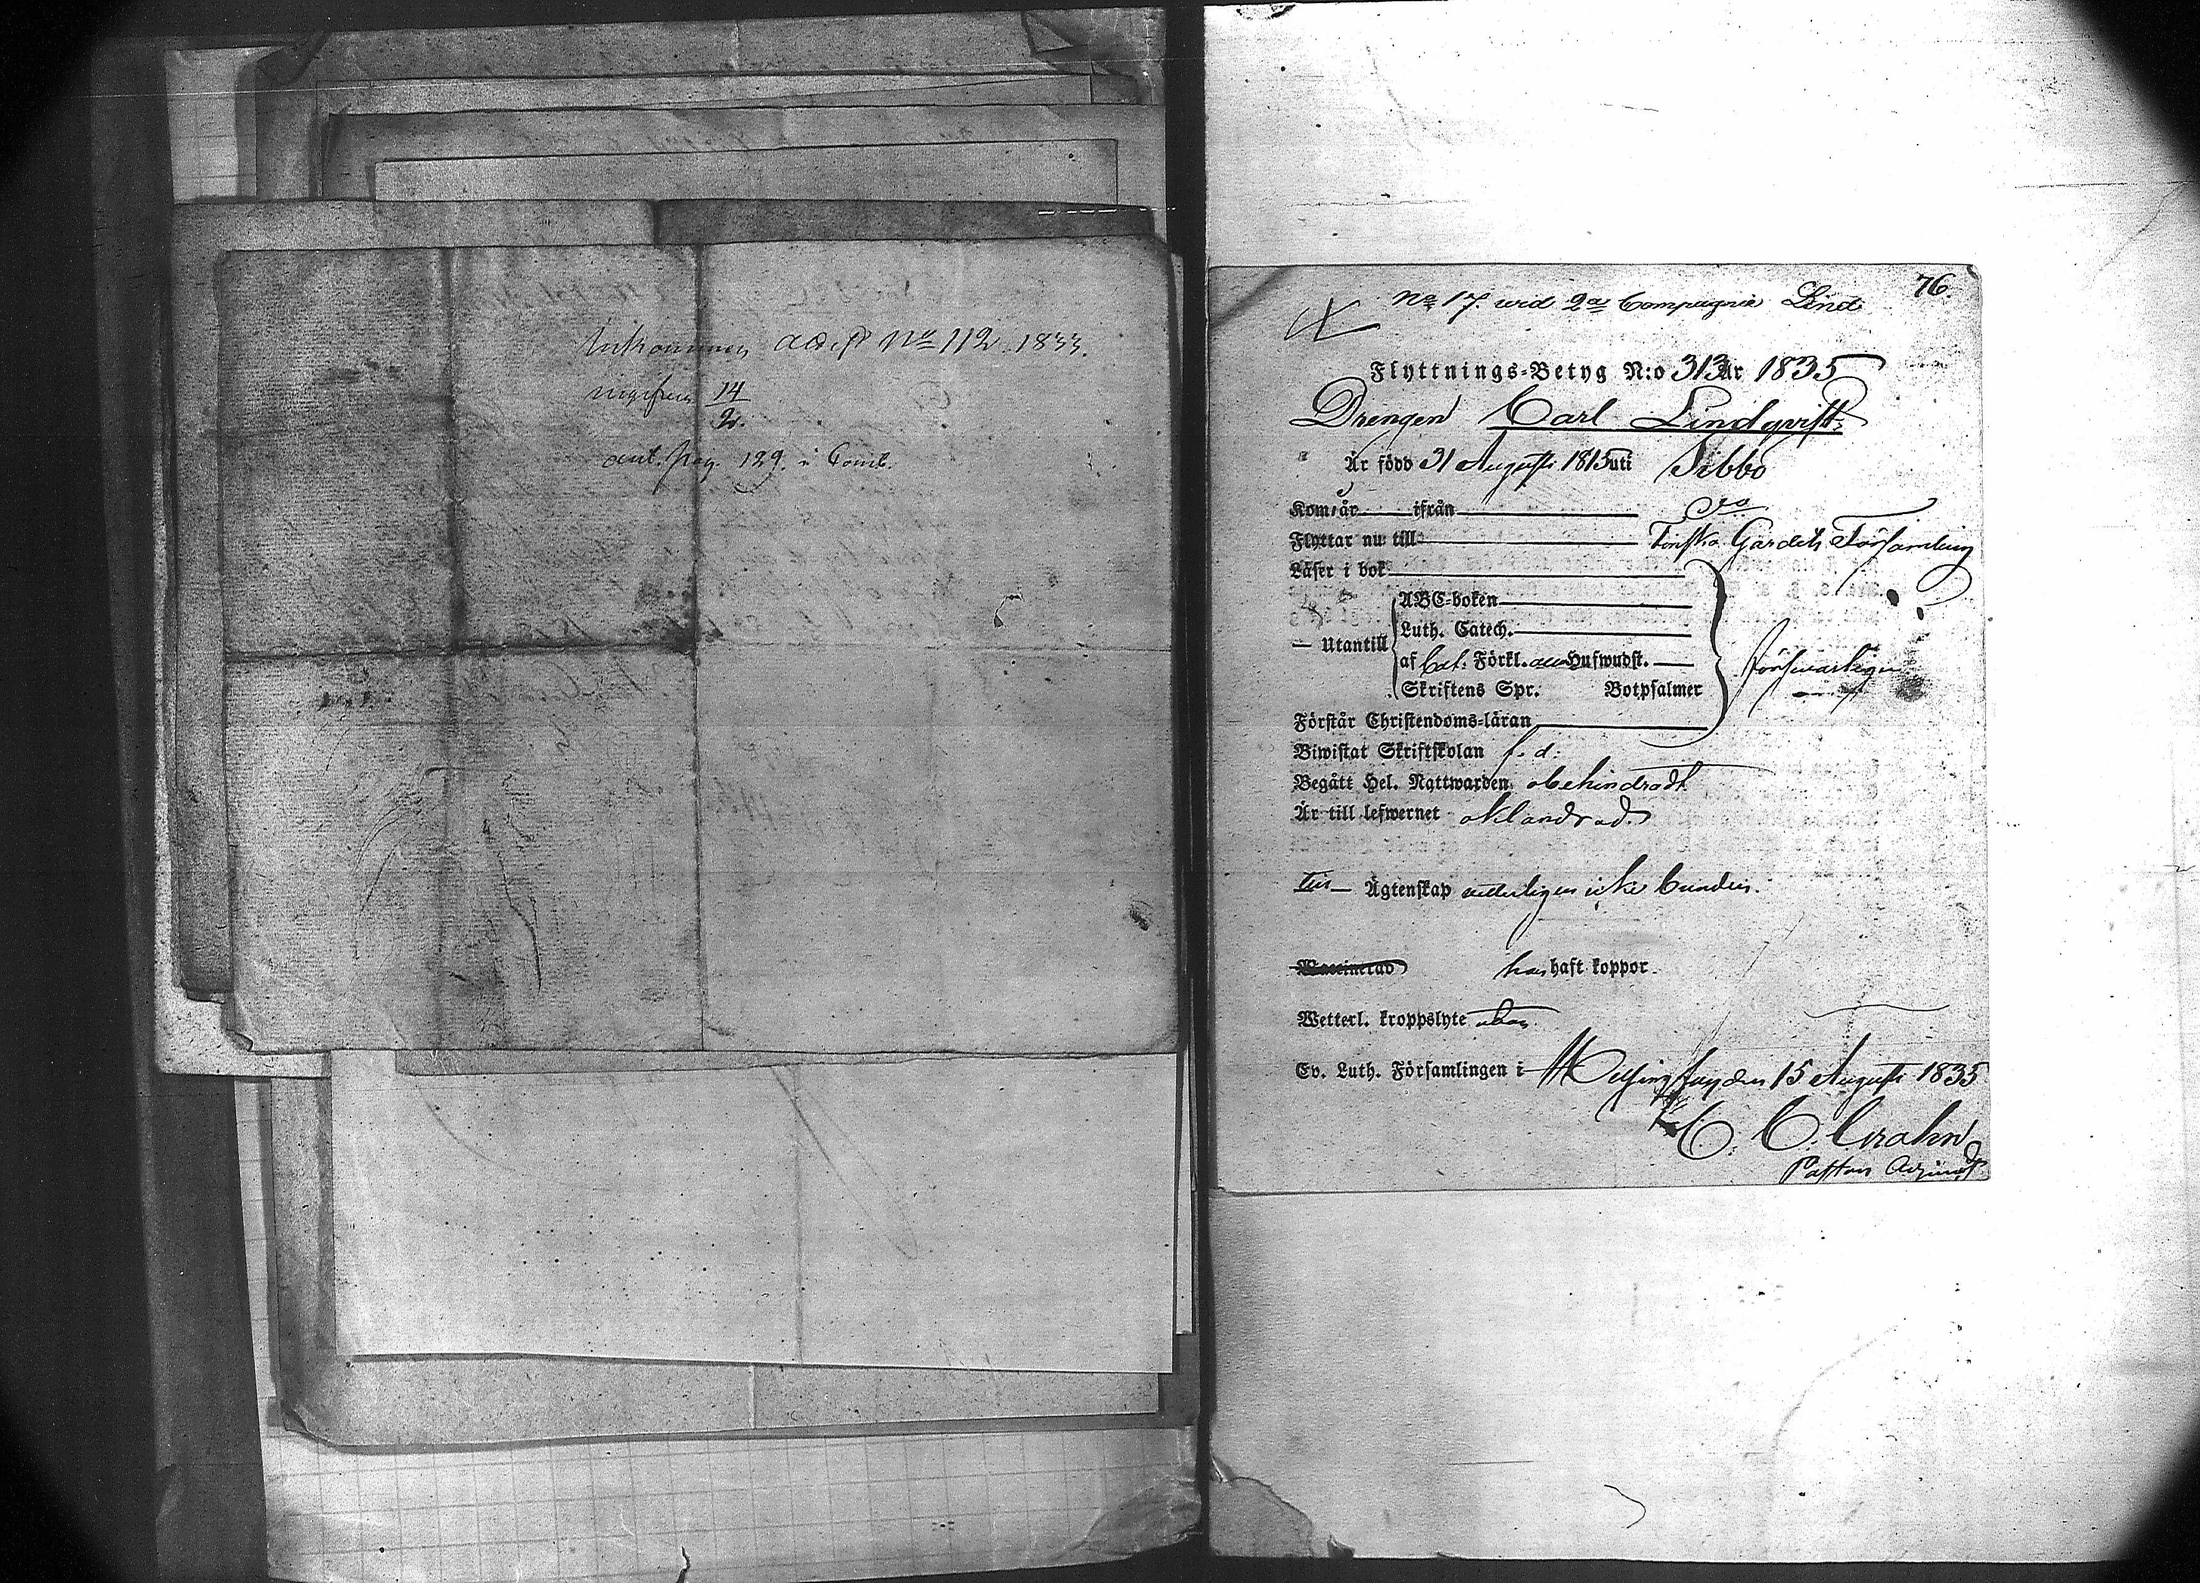 Inkommen N:o 112. 1833.
14
2.
ant. pag. 129. i Comb.
76.
No 17. wid 2a Compagnie Lind
Flyttnings-Betyg N:o 313 År 1835
Drengen Carl Lindqvist
Är född 31 Augusti 1815 uti Sibbo
Kom: år ifrån
Flyttar nu till Finska Gardets Församling
Läser i bok
Utantill
ABC-boken
Luth. Catech.
af Förkl. Hufwudst.
Skriftens Spr. Botpsalmer
försvarligen
Förstår Christendoms-läran
Biwistat Skriftskolan f. d.
Begått Hel. Nattwarden obehindradt
Är till lefwernet oklandrad.
Till Ägtenskap veterligen icke bunden.
Waccinerad har haft koppor.
Wetterl. kroppslyte utan.
Ev. Luth. Församlingen i Helsingfors den 15 Augusti 1835
C. C. Crohn
Pastors Adjunct